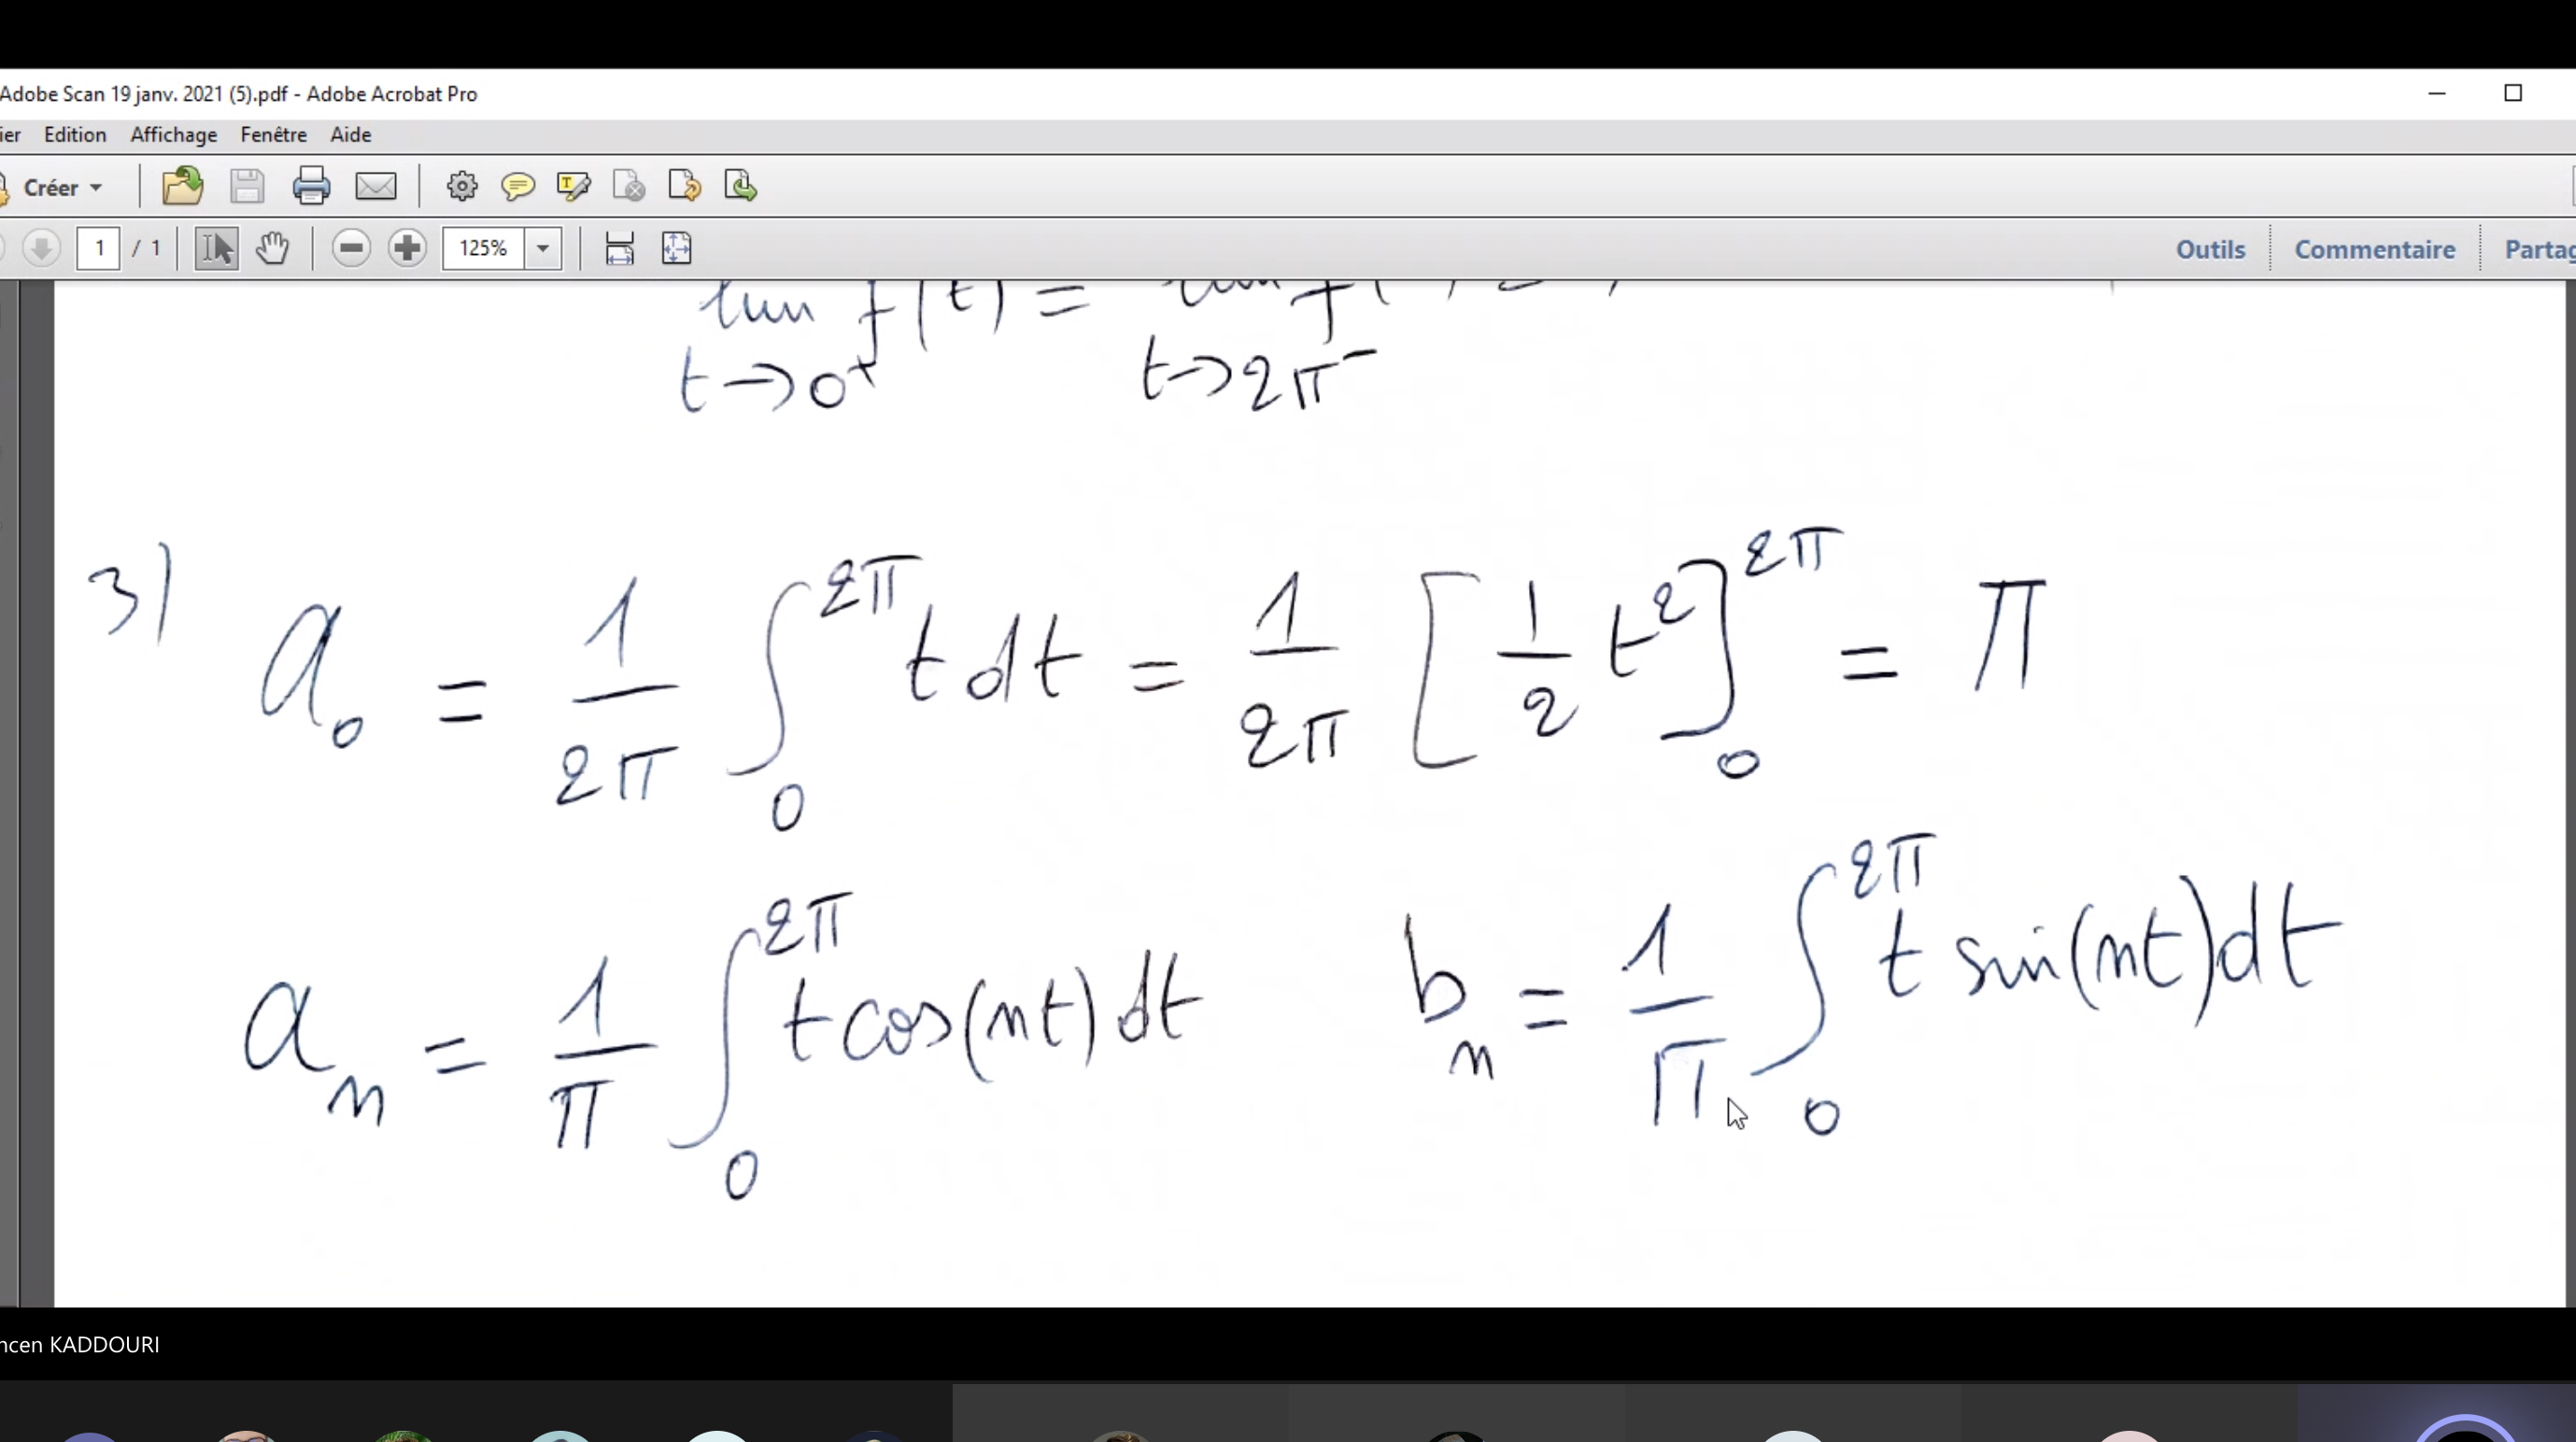 Adobe Scan 19 janv. 2021 (5).pdf - Adobe Acrobat Pro
ier Edition Affichage Fenêtre Aide
Créer
1 / 1 125% Outils Commentaire Partag
lim f(t) = lim f(
t→0⁺ t→2π⁻
3) a₀ = 1/2π ∫₀^2π t dt = 1/2π [1/2 t²]₀^2π = π
aₙ = 1/π ∫₀^2π t cos(nt) dt bₙ = 1/π ∫₀^2π t sin(nt) dt
ncen KADDOURI